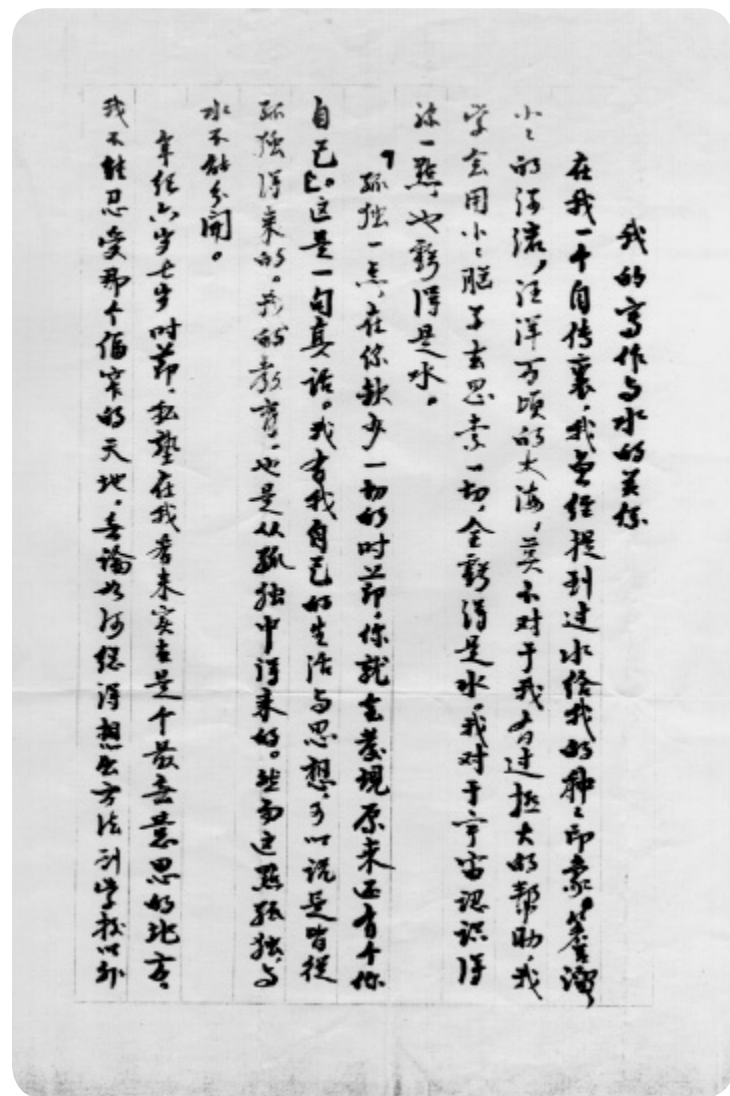 我的写作与水的关系
在我一个自传里，我曾经提到过水给我的种种印象。簷溜，
小小的河流，汪洋万顷的大海，莫不对于我有过极大的帮助，我
学会用小小脑子去思索一切，全亏得是水，我对于宇宙认识得
深一点，也亏得是水。
「孤独一点，在你缺少一切的时节，你就会发现原来还有个你
自己」。这是一句真话。我有我自己的生活与思想，可以说是皆从
孤独得来的。我的教育，也是从孤独中得来的。然而这点孤独，与
水不能分开。
年纪六岁七岁时节，私塾在我看来实在是个最无意思的地方。
我不能忍受那个偪窄的天地，无论如何总得想出方法到学校以外